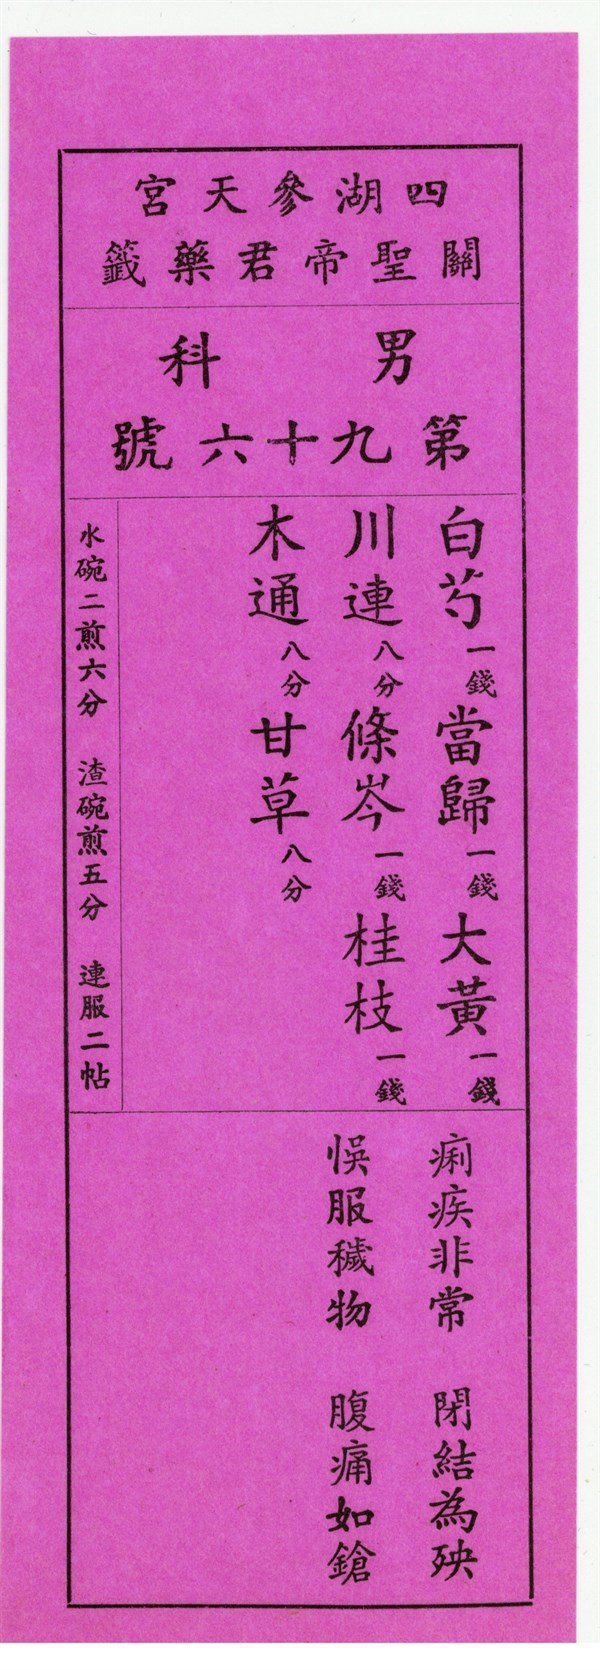 四湖參天宮
關聖帝君藥籤
男科
第九十六號
白芍一錢當歸一錢大黃一錢
川連八分條岑一錢桂枝一錢
木通八分甘草八分
水碗二煎六分 渣碗煎五分 連服二帖
痢疾非常 閉結為殃
悞服穢物 腹痛如鎗